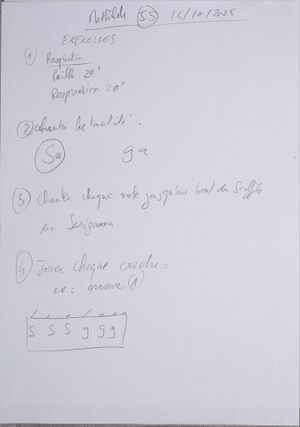 Mathilde (55) 14/10/2025
EXERCICES
1) Respiration
Paille 20"
Respiration 20"
2) chanter la tonalité :
Sa ga
3) Chanter chaque note jusqu'au bout du souffle
en Saregama
4) Jouer chaque croche :
ex : mesure 1
S S S g g g